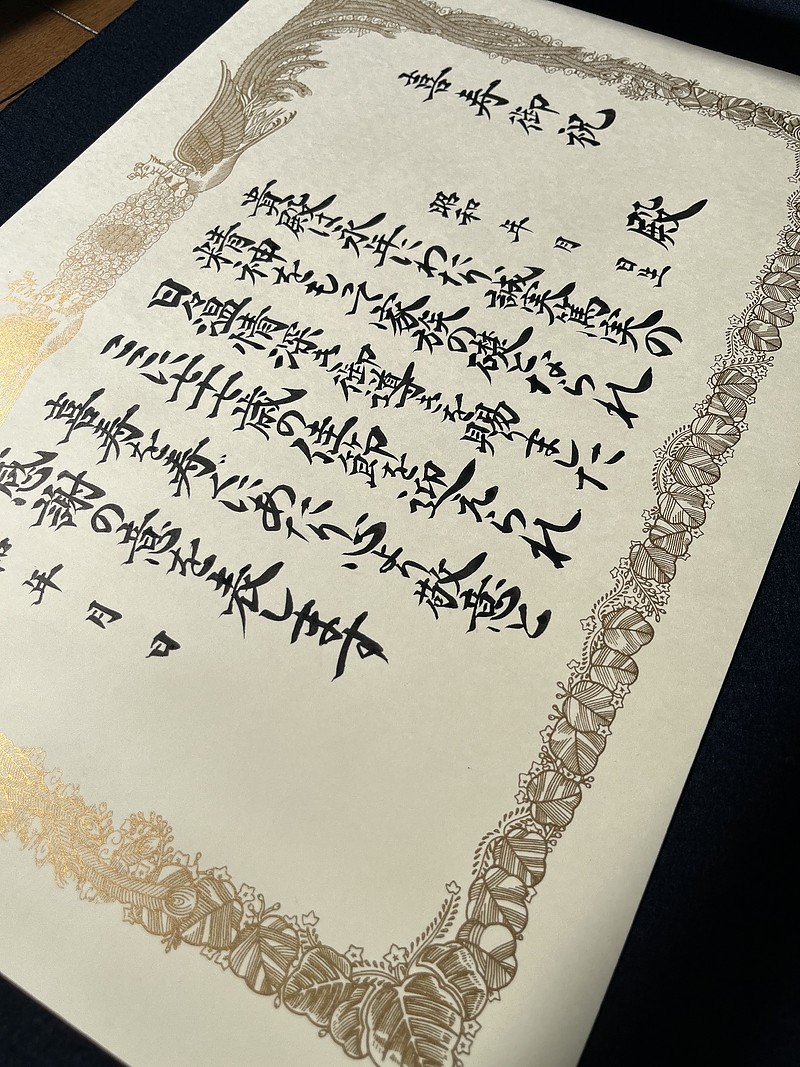 喜寿御祝
殿
昭和 年 月 日生
貴殿は永年にわたり誠実篤実の
精神をもって家族の礎となられ
日々温情深き御導きを賜りました
ここに七十七歳の佳節を迎えられ
喜寿を寿ぐにあたり心より敬意と
感謝の意を表します
和 年 月 日